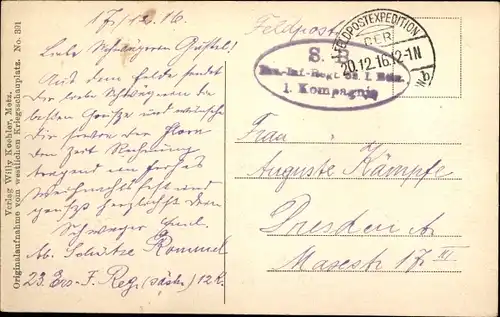 17/12.16.
Liebe Schwägerin Gustel!
Aus dem Felde sendet
dir liebe Schwägerin die
besten Grüße und wünsche
dir sowie den
der Zeit Rechnung
tragend ein frohes
Weihnachtsfest und
grüßt herzlichst dein
Schwager Emil.
Ab. Schütze Rommel
23. Ers-F. Reg. (sächs.) 12 K.
Feldpost
S.
Ers.-Inf.-Regt. 23. I. Batl.
1. Kompagnie
FELDPOSTEXPEDITION
DER
20.12.16.12-1N
b
Frau
Auguste Kämpfe
Dresden A.
17 III
Verlag Willy Koehler, Metz.
Originalaufnahme vom westlichen Kriegsschauplatz. No. 391